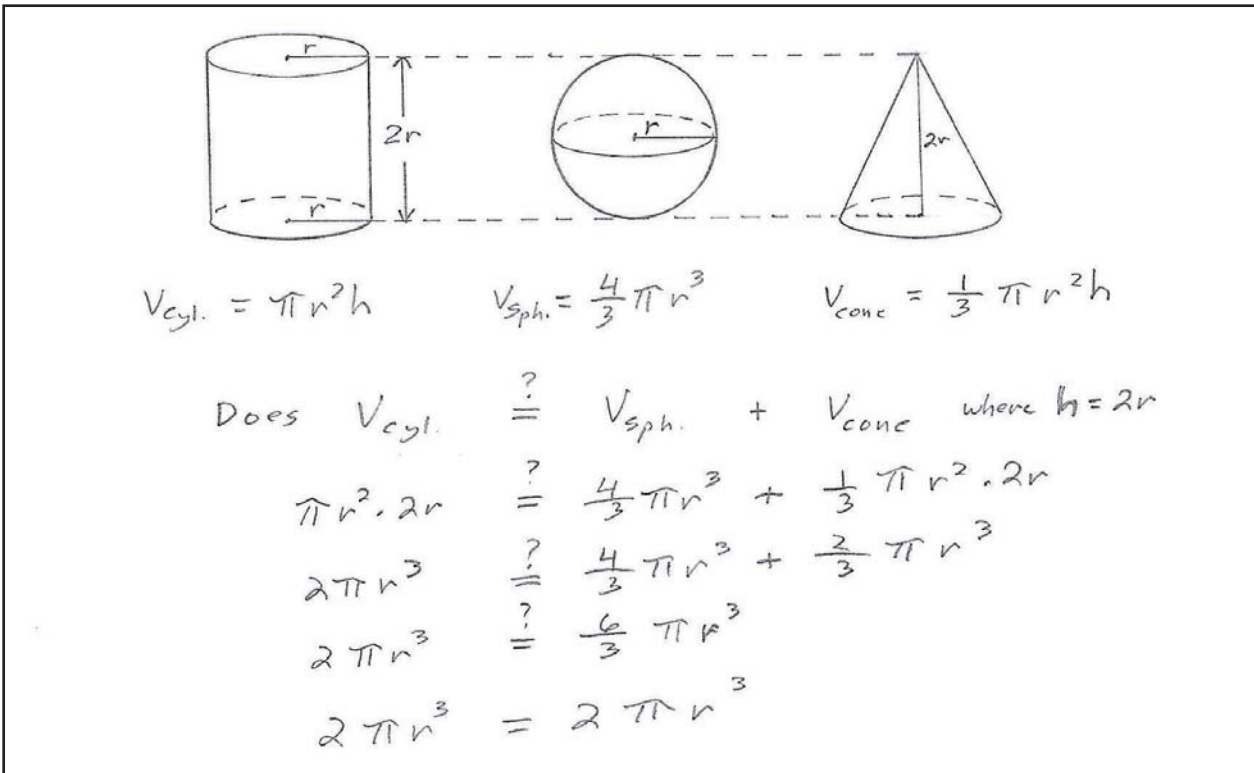 r
2r
r
r
2r
V_cyl. = πr²h V_sph. = 4/3 πr³ V_cone = 1/3 πr²h
Does V_cyl. ≟ V_sph. + V_cone where h = 2r
πr² · 2r ≟ 4/3 πr³ + 1/3 πr² · 2r
2πr³ ≟ 4/3 πr³ + 2/3 πr³
2πr³ ≟ 6/3 πr³
2πr³ = 2πr³